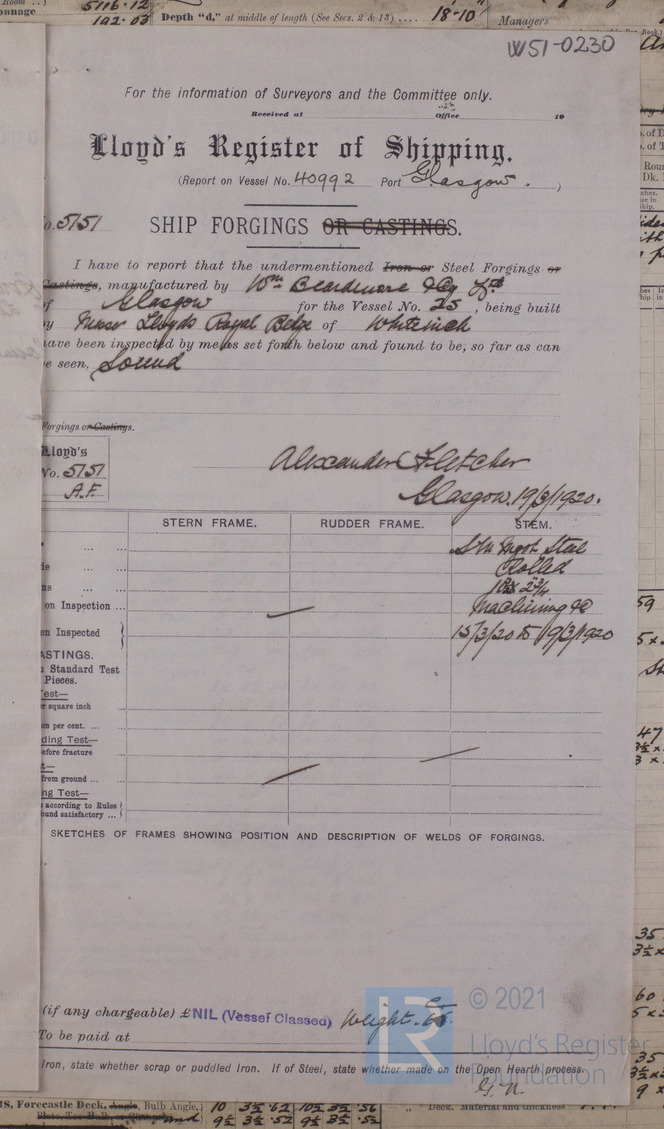 onnage 5116.12
192.03 Depth "d," at middle of length (See Secs. 2 & 13) .... 18-10 Managers
W51-0230
For the information of Surveyors and the Committee only.
Received at Office 19
Lloyd's Register of Shipping.
(Report on Vessel No. 40992 Port Glasgow.)
o. 5151 SHIP FORGINGS OR CASTINGS.
I have to report that the undermentioned Iron or Steel Forgings or
Castings, manufactured by Wm Beardmore & Co Ltd
of Glasgow for the Vessel No. 25, being built
by Messrs Lloyds Royal Belge of Whiteinch
ave been inspected by me as set forth below and found to be, so far as can
e seen, Sound
Forgings or Castings.
Lloyd's
No. 5151
A.F.
Alexander Fletcher
Glasgow. 19/3/1920.
STERN FRAME. RUDDER FRAME. STEM.
S.M. Ingot Steel
de ... ... Rolled
ns ... ...
on Inspection ... Machining &c
en Inspected 15/3/20 to 19/3/1920
ASTINGS.
Standard Test
Pieces.
est—
r square inch
on per cent. ... ...
ding Test—
efore fracture
t—
from ground ... ...
ng Test—
according to Rules
ound satisfactory ...
SKETCHES OF FRAMES SHOWING POSITION AND DESCRIPTION OF WELDS OF FORGINGS.
(if any chargeable) £ NIL (Vessel Classed) Weight.
To be paid at
Iron, state whether scrap or puddled Iron. If of Steel, state whether made on the Open Hearth process.
LR © 2021
Lloyd's Register
Foundation
Forecastle Deck, Angle, Bulb Angle,
Deck, Material and thickness